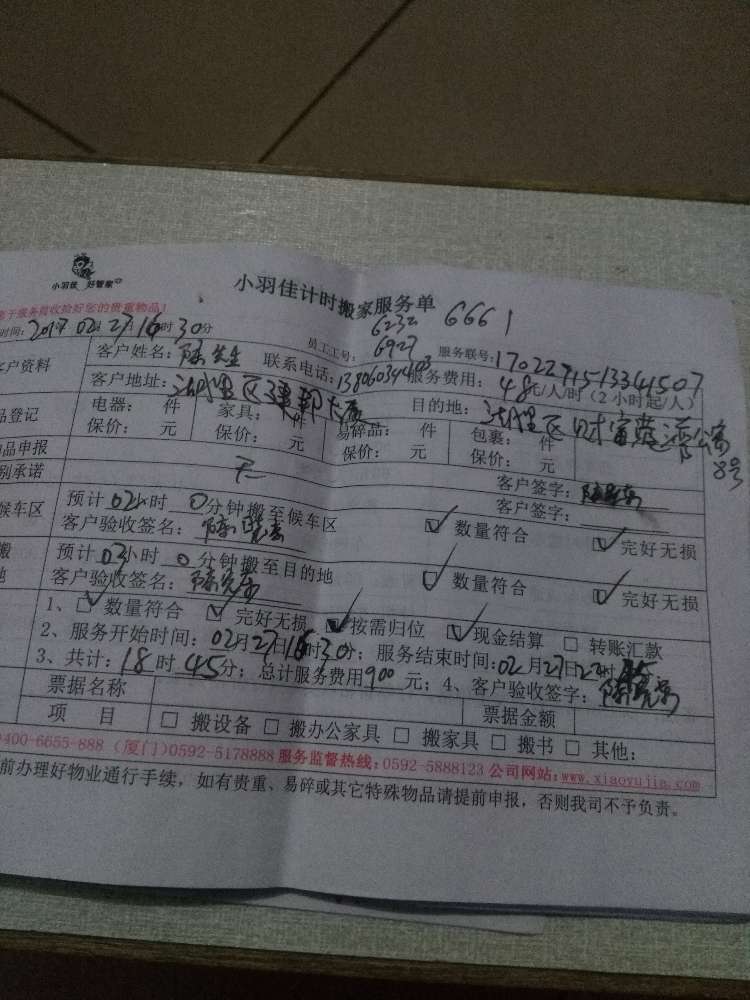 小羽佳 好管家
小羽佳计时搬家服务单 6661
于服务前收拾好您的贵重物品！
6232
时间：2017年02月27日16时30分 员工工号：6927 服务联号：1702271513341507
户资料 客户姓名：陈先生 联系电话：13806034403 服务费用：48元/人/时（2小时起/人）
客户地址：湖里区建郭大厦 目的地：湖里区财富港湾公寓
8号
品登记 电器： 件 家具： 件 易碎品： 件 包裹： 件
保价： 元 保价： 元 保价： 元 保价： 元
品申报 无
别承诺 客户签字：
候车区 预计02小时 0分钟搬至候车区 客户签字：
客户验收签名： ☑ 数量符合 ☑ 完好无损
搬 预计03小时 0分钟搬至目的地
地 客户验收签名： ☑ 数量符合 ☑ 完好无损
1、☑ 数量符合 ☑ 完好无损 ☑ 按需归位 ☑ 现金结算 □ 转账汇款
2、服务开始时间：02月27日16时30分；服务结束时间：02月27日22时
3、共计：18时45分；总计服务费用900元；4、客户验收签字：
票据名称 票据金额
项 目 □ 搬设备 □ 搬办公家具 □ 搬家具 □ 搬书 □ 其他：
400-6655-888 （厦门）0592-5178888 服务监督热线：0592-5888123 公司网站：www.xiaoyujia.com
前办理好物业通行手续，如有贵重、易碎或其它特殊物品请提前申报，否则我司不予负责。